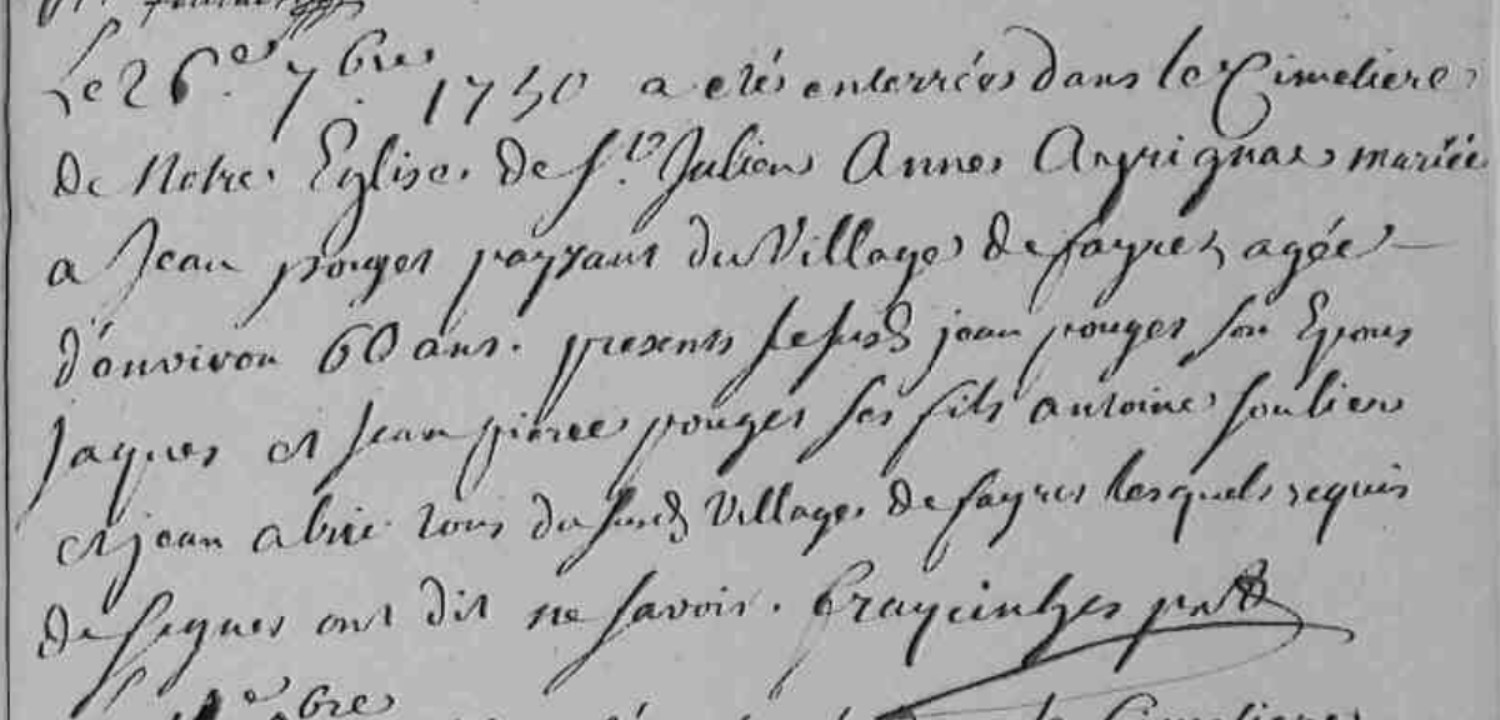 Le 26e 7bre 1750 a etés enterrées dans le Cimetiere
de Notre Eglise de St Julien Anne mariée
a Jean pouget paysant du Village de fayret agée
d'environ 60 ans. presents le susd jean pouget son Epous
jaques et jean pierre pouget ses fils antoine soulier
et jean abrie tous du susd Village de fayret lesquels requis
de signer ont dit ne savoir.
bre
Cimetiere